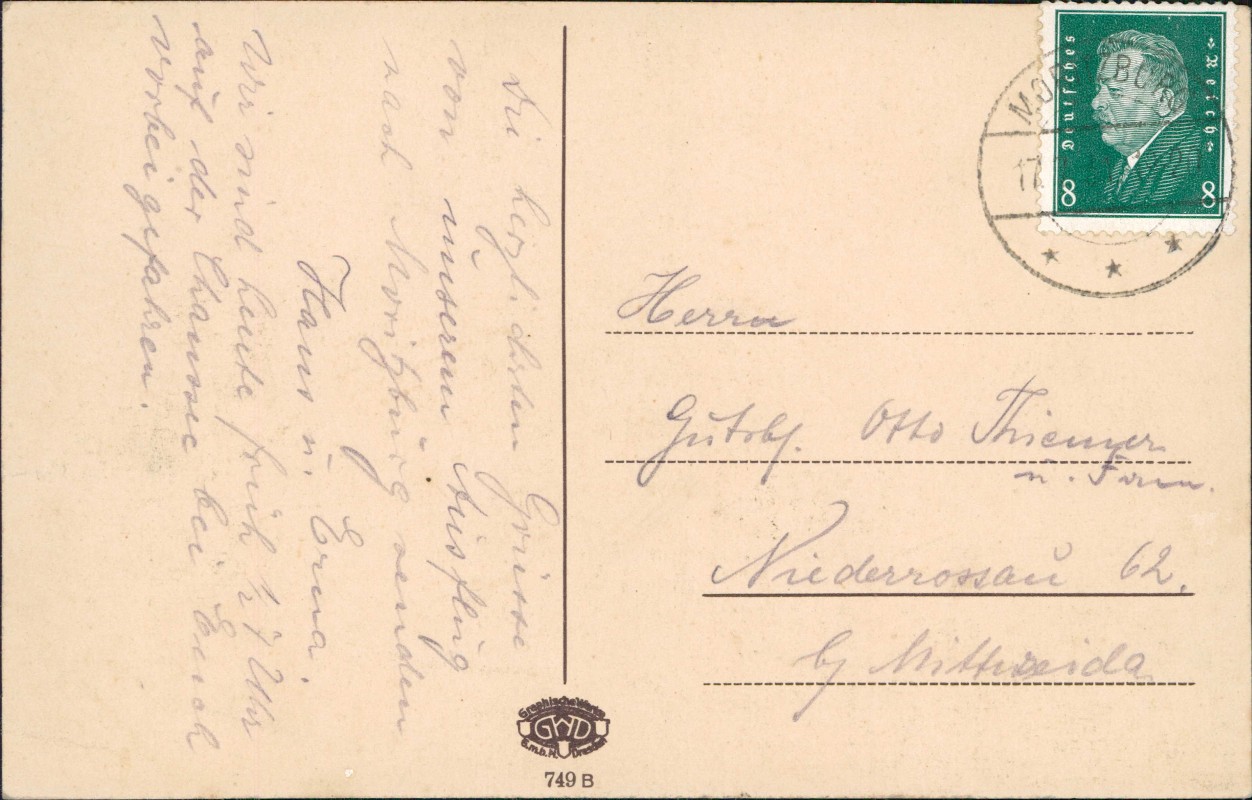 Die herzlichsten Grüsse
von unserem Ausflug
nach Moritzburg senden
Hans u. Erna.
Wir sind heute früh ½ 7 Uhr
auf der Chaussee bei Euch
vorbei gefahren.
Deutsches Reich
8 8
MORITZBURG
17
Herrn
Gutsbs. Otto Thiemer
u. Fam.
Niederrossau 62.
b/ Mittweida
Graphische Werke
GWD
G.m.b.H. Dresden
749 B